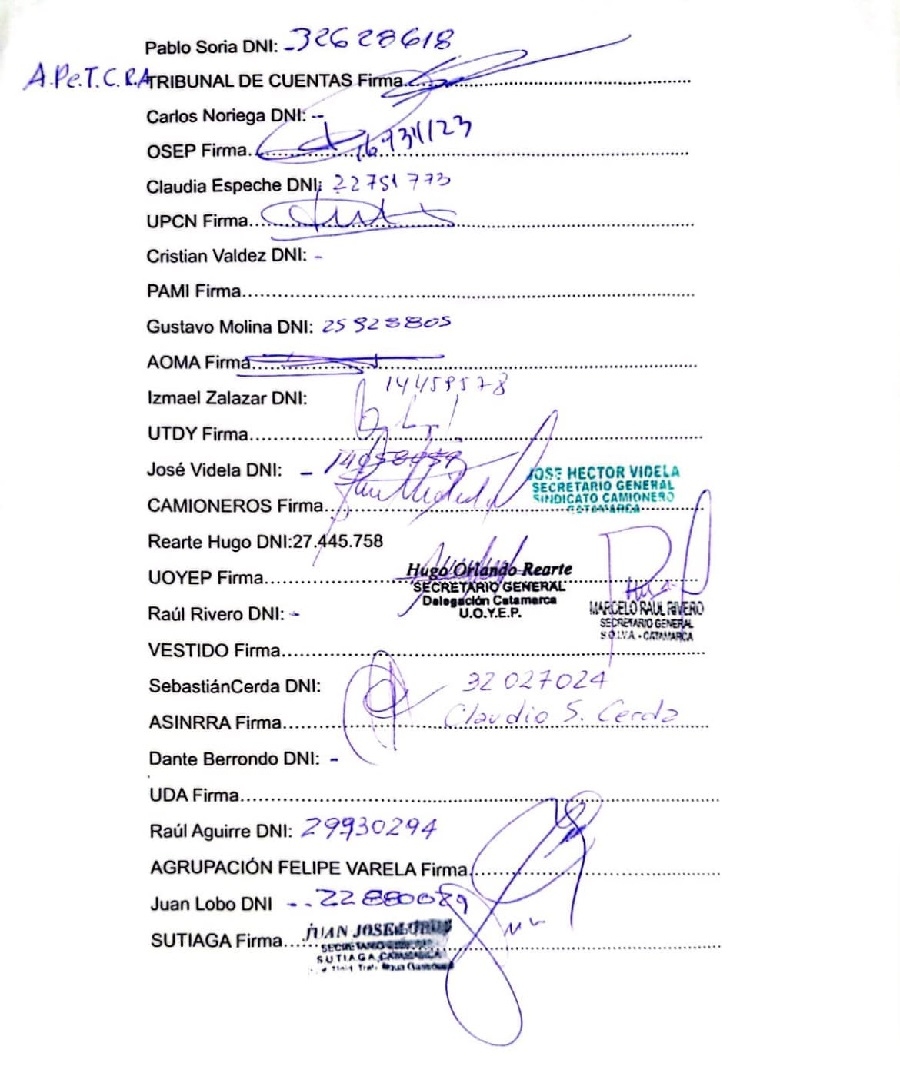 Pablo Soria DNI: 32628618
A.Pe.T.C.RA TRIBUNAL DE CUENTAS Firma
Carlos Noriega DNI: --
OSEP Firma
Claudia Espeche DNI: 22751773
UPCN Firma
Cristian Valdez DNI: -
PAMI Firma
Gustavo Molina DNI: 25928805
AOMA Firma
Izmael Zalazar DNI: 14459578
UTDY Firma
José Videla DNI: -
JOSE HECTOR VIDELA
SECRETARIO GENERAL
SINDICATO CAMIONERO
CATAMARCA
CAMIONEROS Firma
Rearte Hugo DNI:27.445.758
UOYEP Firma
Hugo Orlando Rearte
SECRETARIO GENERAL
Delegación Catamarca
U.O.Y.E.P.
Raúl Rivero DNI: -
MARCELO RAUL RIVERO
SECRETARIO GENERAL
SOIVA - CATAMARCA
VESTIDO Firma
SebastiánCerda DNI: 32027024
ASINRRA Firma Claudio S. Cerda
Dante Berrondo DNI: -
UDA Firma
Raúl Aguirre DNI: 29930294
AGRUPACIÓN FELIPE VARELA Firma
Juan Lobo DNI
SUTIAGA Firma
JUAN JOSE
SUTIAGA CATAMARCA